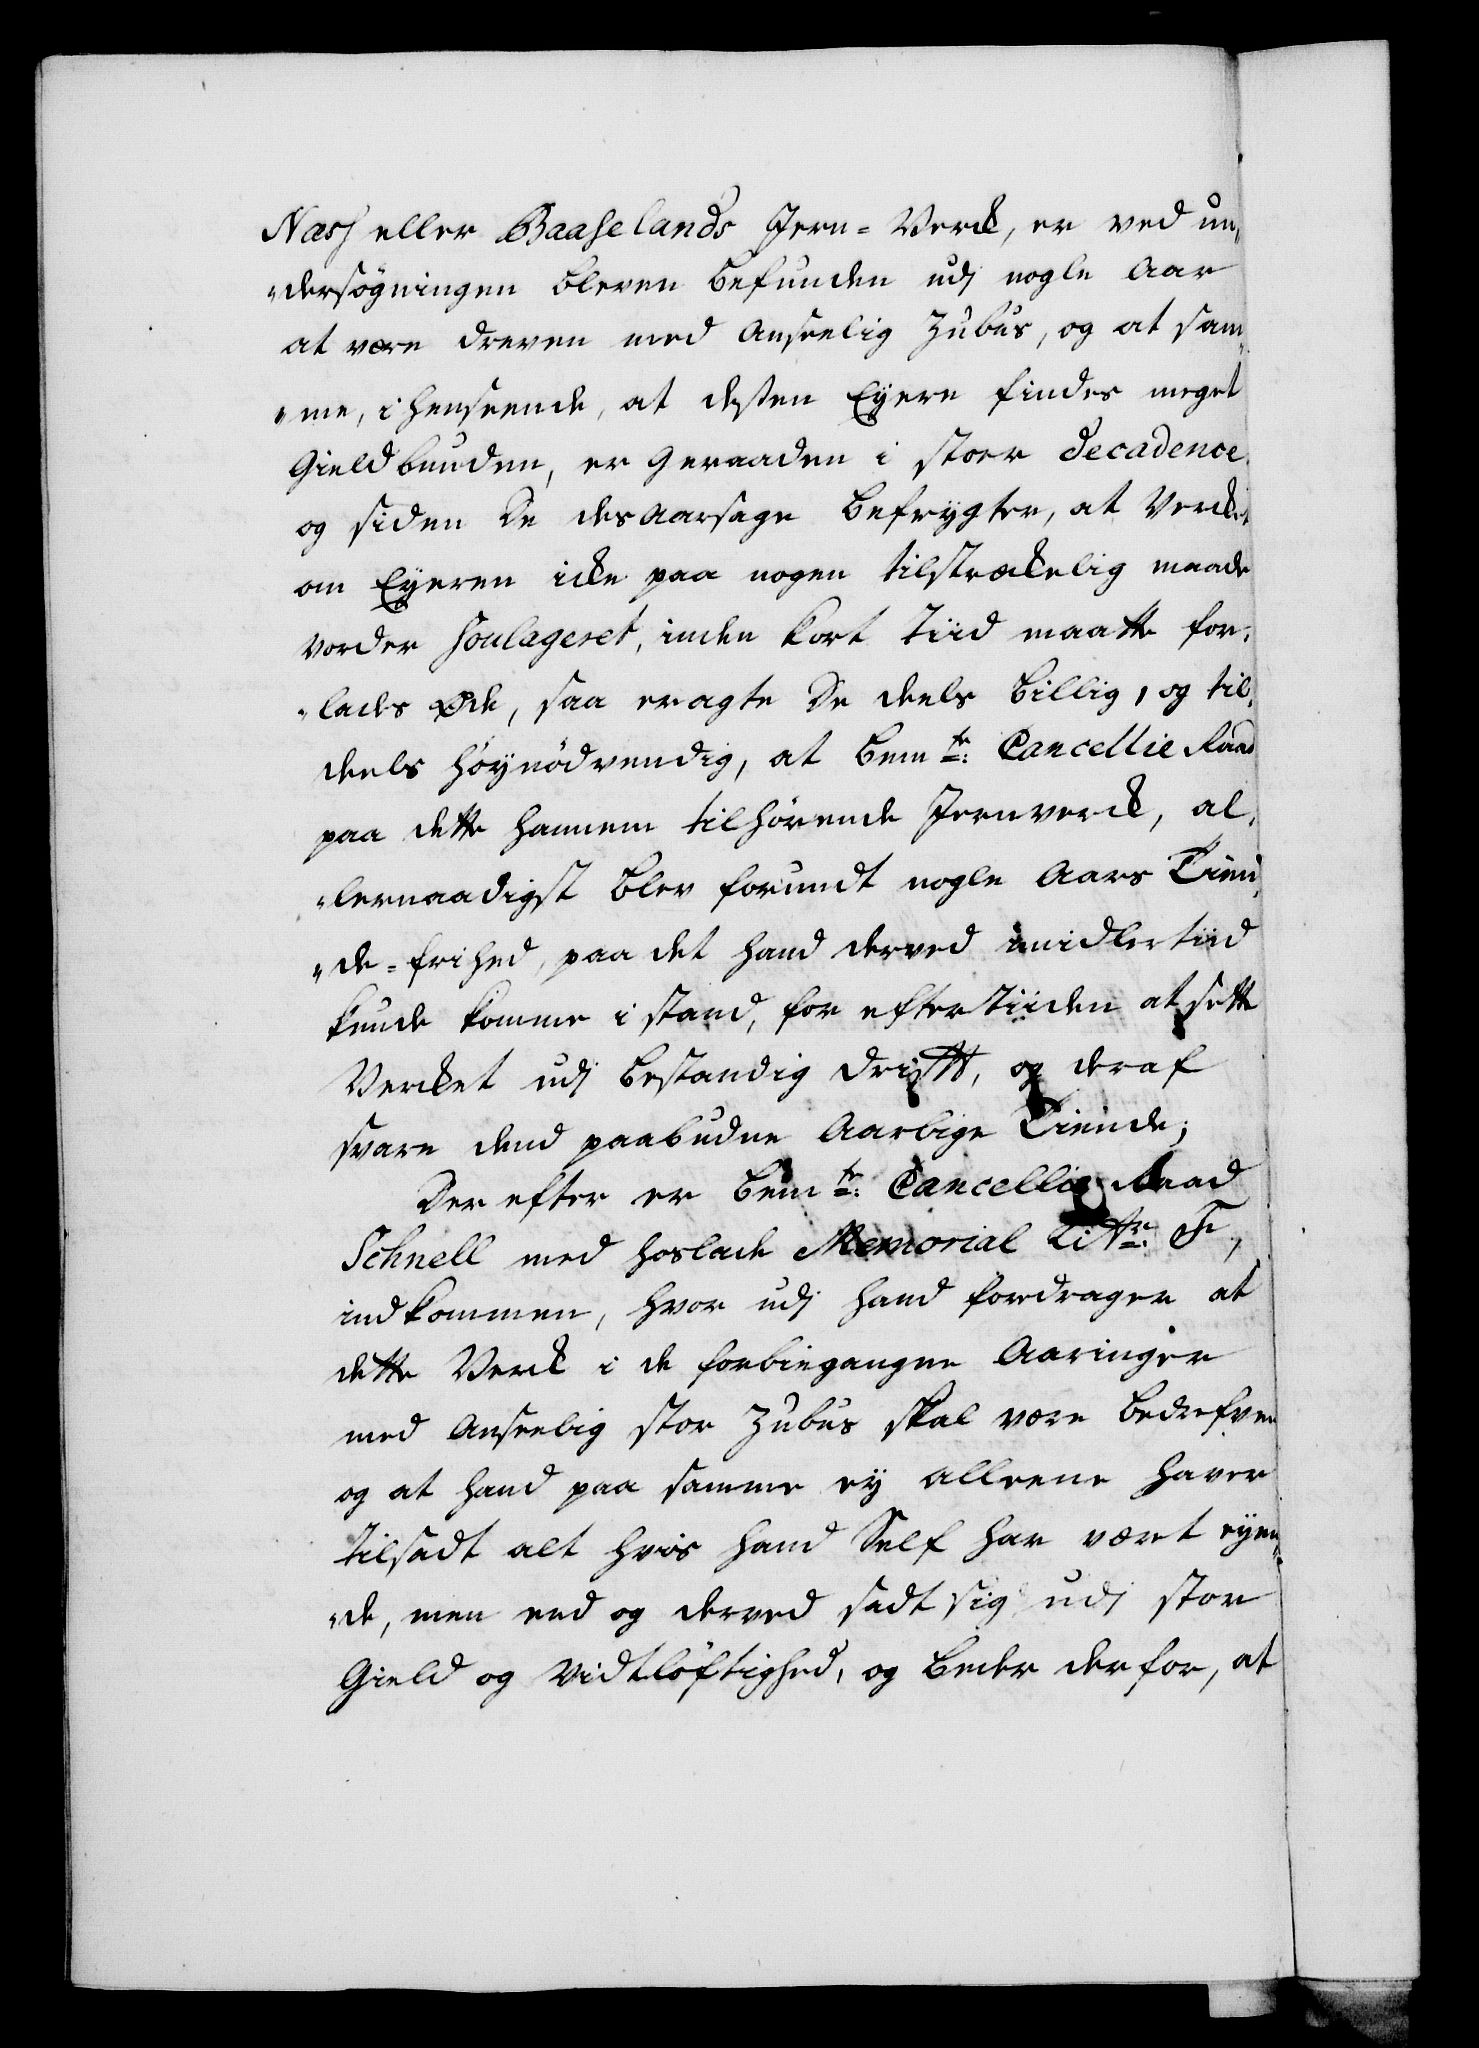 Næss eller Baaselands Jern=Verck, er ved un„
„dersøgningen bleven befunden udj nogle Aar
at være dreven med Anseelig Zubus, og at sam„
„me, i henseende, at dessen Eyere findes meget
Gieldbunden, er geraaden i stoer decadence
og siden De des aarsage befrygter, at Vercket
om Eyeren icke paa nogen tilstræckelig maade
vorder soulageret, inden kort tiid maatte for„
„lades Øde, saa eragte De deels billig, og til„
deels høynødvendig, at bemte: Cancellie Raad
paa dette hannem tilhørende Jernverck, al„
„lernaadigst blev forundt nogle Aars Tien„
„de=frihed, paa det hand derved imidlertiid
kunde komme i stand, for eftertiiden at sette
Vercket udj bestandig Drifft, og deraf
svare dend paabudne Aarlige Tiende;
Der efter er bemte: Cancellie Raad
Schnell med hoslade Memorial Littr: F,
indkommen, hvor udj hand fordrager at
dette Verck i de forbiegangne Aaringer
med Anseelig stor Zubus skal være bedrefven
og at hand paa samme ey alleene haver
tilsadt alt hvis hand Self har været eyen„
„de, men end og derved sadt sig udj stor
Gield og Vidtløftighed, og beder derfor, at